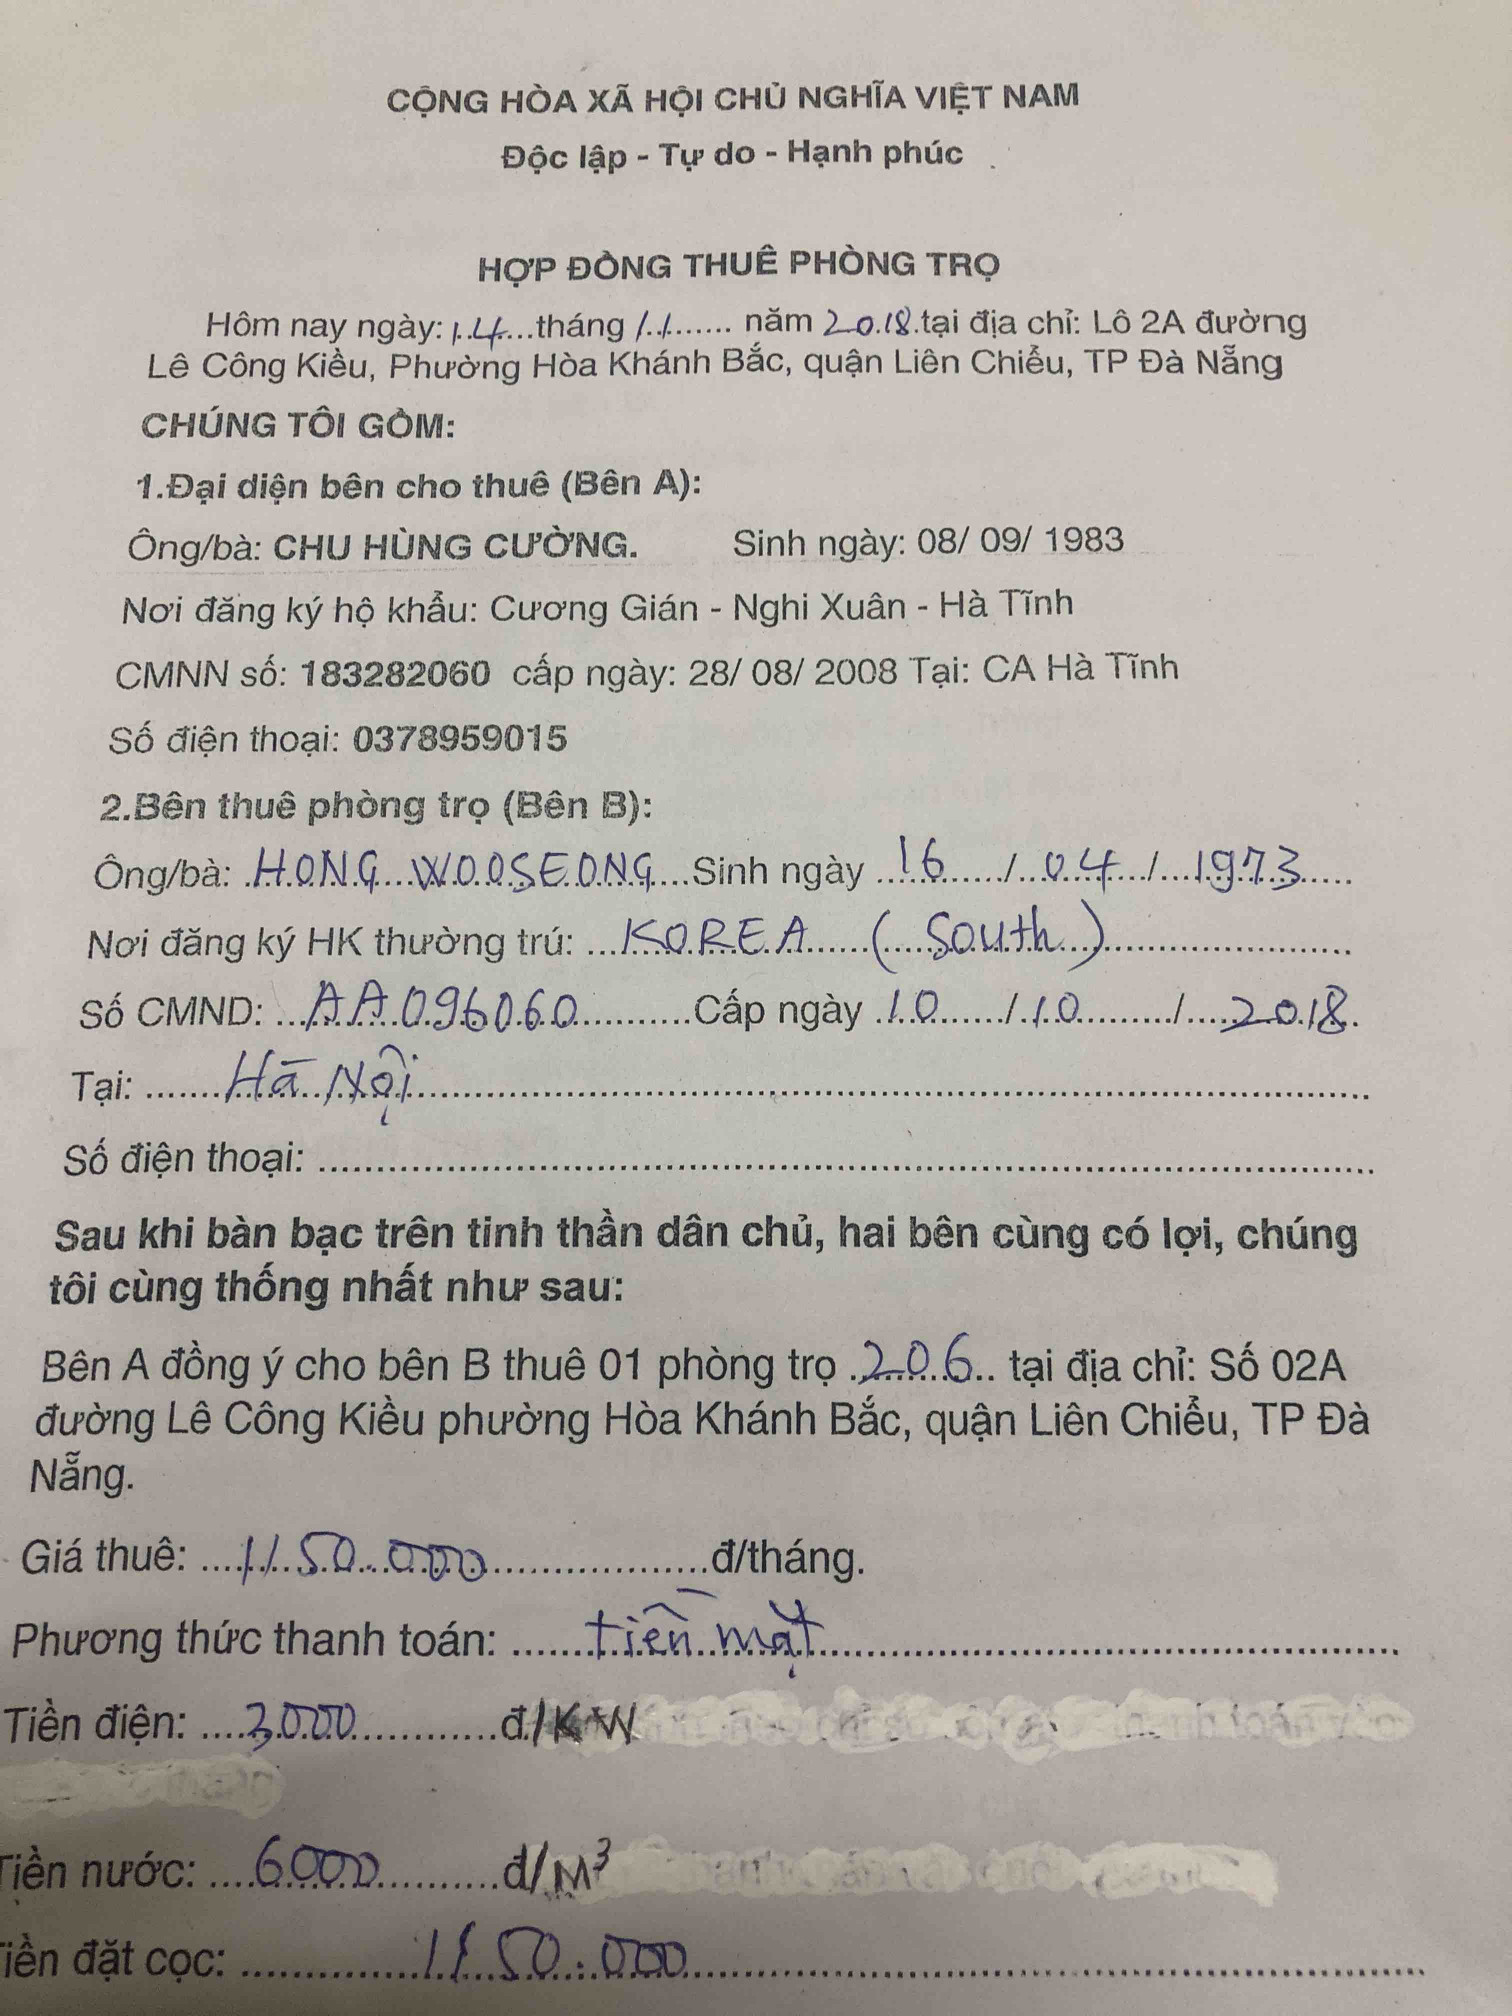 CỘNG HÒA XÃ HỘI CHỦ NGHĨA VIỆT NAM
Độc lập - Tự do - Hạnh phúc
HỢP ĐỒNG THUÊ PHÒNG TRỌ
Hôm nay ngày: 14 tháng 11 năm 2018 tại địa chỉ: Lô 2A đường
Lê Công Kiều, Phường Hòa Khánh Bắc, quận Liên Chiểu, TP Đà Nẵng
CHÚNG TÔI GỒM:
1.Đại diện bên cho thuê (Bên A):
Ông/bà: CHU HÙNG CƯỜNG. Sinh ngày: 08/ 09/ 1983
Nơi đăng ký hộ khẩu: Cương Gián - Nghi Xuân - Hà Tĩnh
CMNN số: 183282060 cấp ngày: 28/ 08/ 2008 Tại: CA Hà Tĩnh
Số điện thoại: 0378959015
2.Bên thuê phòng trọ (Bên B):
Ông/bà: HONG WOOSEONG Sinh ngày 16 / 04 / 1973
Nơi đăng ký HK thường trú: KOREA (South)
Số CMND: AA096060 Cấp ngày 10 / 10 / 2018.
Tại: Hà Nội
Số điện thoại:
Sau khi bàn bạc trên tinh thần dân chủ, hai bên cùng có lợi, chúng
tôi cùng thống nhất như sau:
Bên A đồng ý cho bên B thuê 01 phòng trọ 206 tại địa chỉ: Số 02A
đường Lê Công Kiều phường Hòa Khánh Bắc, quận Liên Chiểu, TP Đà
Nẵng.
Giá thuê: 1150.000 đ/tháng.
Phương thức thanh toán: tiền mặt
Tiền điện: 3000 đ/KW
Tiền nước: 6000 đ/M³
Tiền đặt cọc: 1150.000